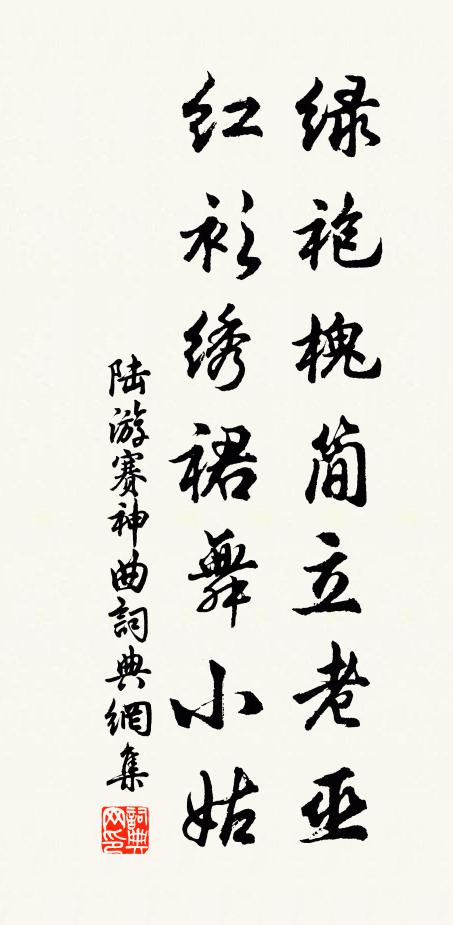 绿袍槐简立老巫
红衫绣裙舞小姑
陆游赛神曲詞典網集
詞典网印